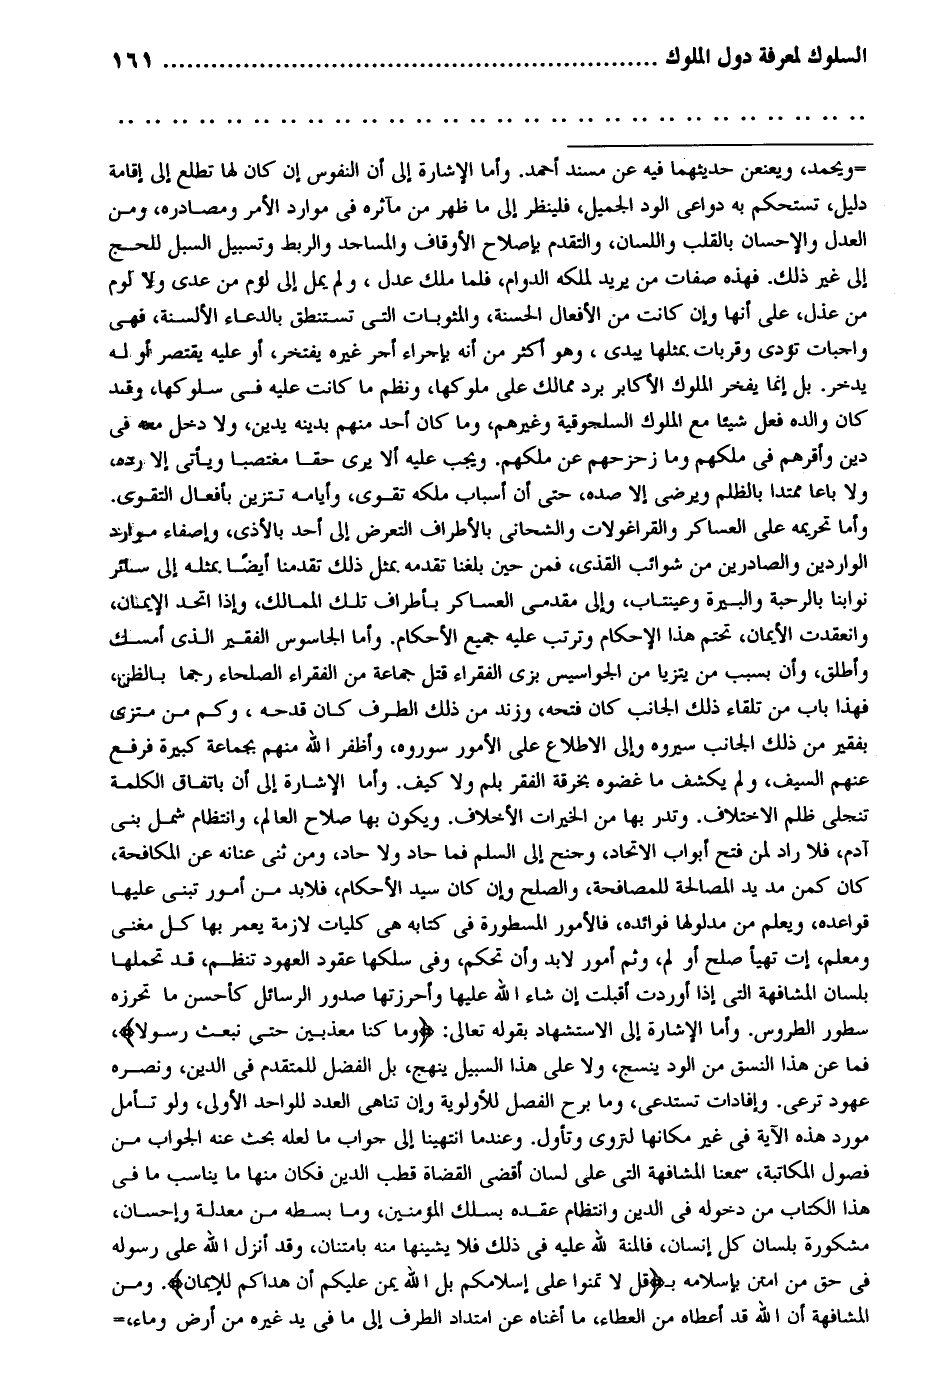 السلوك لمعرفة دول الملوك ............................................................. ١٦١
. . . . . . . . . . . . . . . . . . . . . . . . . . . . . . . . . . . . . . . . . . . . . . . . . . . . . . . .
=ويحمد، ويعنعن حديثهما فيه عن مسند أحمد. وأما الإشارة إلى أن النفوس إن كان لها تطلع إلى إقامة
دليل، تستحكم به دواعى الود الجميل، فلينظر إلى ما ظهر من مآثره فى موارد الأمر ومصادره، ومن
العدل والإحسان بالقلب واللسان، والتقدم بإصلاح الأوقاف والمساجد والربط وتسبيل السبل للحج
إلى غير ذلك. فهذه صفات من يريد لملكه الدوام، فلما ملك عدل ، و لم يمل إلى لؤم من عدى ولا لوم
من عذل، على أنها وإن كانت من الأفعال الحسنة، والمثوبات التى تستنطق بالدعاء الألسنة، فهى
واجبات تؤدى وقربات بمثلها يبدى ، وهو أكثر من أنه بإجراء أجر غيره يفتخر، أو عليه يقتصر أو له
يدخر. بل إنما يفخر الملوك الأكابر برد ممالك على ملوكها، ونظم ما كانت عليه فى سلوكها، وقد
كان والده فعل شيئا مع الملوك السلجوقية وغيرهم، وما كان أحد منهم بدينه يدين، ولا دخل معه فى
دين وأقرهم فى ملكهم وما زحزحهم عن ملكهم. ويجب عليه ألا يرى حقا مغتصبا ويأتى إلا رده،
ولا باعا ممتدا بالظلم ويرضى إلا صده، حتى أن أسباب ملكه تقوى، وأيامه تتزين بأفعال التقوى.
وأما تحريمه على العساكر والقراغولات والشحانى بالأطراف التعرض إلى أحد بالأذى، وإصفاء موارد
الواردين والصادرين من شوائب القذى، فمن حين بلغنا تقدمه بمثل ذلك تقدمنا أيضًا بمثله إلى سائر
نوابنا بالرحبة والبيرة وعينتاب، وإلى مقدمى العساكر بأطراف تلك الممالك، وإذا اتحد الإيمان،
وانعقدت الأيمان، تحتم هذا الإحكام وترتب عليه جميع الأحكام. وأما الجاسوس الفقير الذى أمسك
وأطلق، وأن بسبب من يتزيا من الجواسيس بزى الفقراء قتل جماعة من الفقراء الصلحاء رجما بالظن،
فهذا باب من تلقاء ذلك الجانب كان فتحه، وزند من ذلك الطرف كان قدحه ، وكم من متزى
بفقير من ذلك الجانب سيروه وإلى الاطلاع على الأمور سوروه، وأظفر الله منهم بجماعة كبيرة فرفع
عنهم السيف، و لم يكشف ما غضوه بخرقة الفقر بلم ولا كيف. وأما الإشارة إلى أن باتفاق الكلمة
تنجلى ظلم الاختلاف. وتدر بها من الخيرات الأخلاف. ويكون بها صلاح العالم، وانتظام شمل بنى
آدم، فلا راد لمن فتح أبواب الاتحاد، وجنح إلى السلم فما حاد ولا حاد، ومن ثنى عنانه عن المكافحة،
كان كمن مد يد المصالحة للمصافحة، والصلح وإن كان سيد الأحكام، فلابد من أمور تبنى عليها
قواعده، ويعلم من مدلولها فوائده، فالأمور المسطورة فى كتابه هى كليات لازمة يعمر بها كل مغنى
ومعلم، إت تهيأ صلح أو لم، وثم أمور لابد وأن تحكم، وفى سلكها عقود العهود تنظم، قد تحملها
بلسان المشافهة التى إذا أوردت أقبلت إن شاء الله عليها وأحرزتها صدور الرسائل كأحسن ما تحرزه
سطور الطروس. وأما الإشارة إلى الاستشهاد بقوله تعالى: ﴿وما كنا معذبين حتى نبعث رسولا﴾،
فما عن هذا النسق من الود ينسج، ولا على هذا السبيل ينهج، بل الفضل للمتقدم فى الدين، ونصره
عهود ترعى. وإفادات تستدعى، وما برح الفصل للأولوية وإن تناهى العدد للواحد الأولى، ولو تأمل
مورد هذه الآية فى غير مكانها لتروى وتأول. وعندما انتهينا إلى جواب ما لعله بحث عنه الجواب من
فصول المكاتبة، سمعنا المشافهة التى على لسان أقضى القضاة قطب الدين فكان منها ما يناسب ما فى
هذا الكتاب من دخوله فى الدين وانتظام عقده بسلك المؤمنين، وما بسطه من معدلة وإحسان،
مشكورة بلسان كل إنسان، فالمنة لله عليه فى ذلك فلا يشينها منه بامتنان، وقد أنزل الله على رسوله
فى حق من امتن بإسلامه بـ﴿قل لا تمنوا على إسلامكم بل الله يمن عليكم أن هداكم للإيمان﴾. ومن
المشافهة أن الله قد أعطاه من العطاء، ما أغناه عن امتداد الطرف إلى ما فى يد غيره من أرض وماء،=